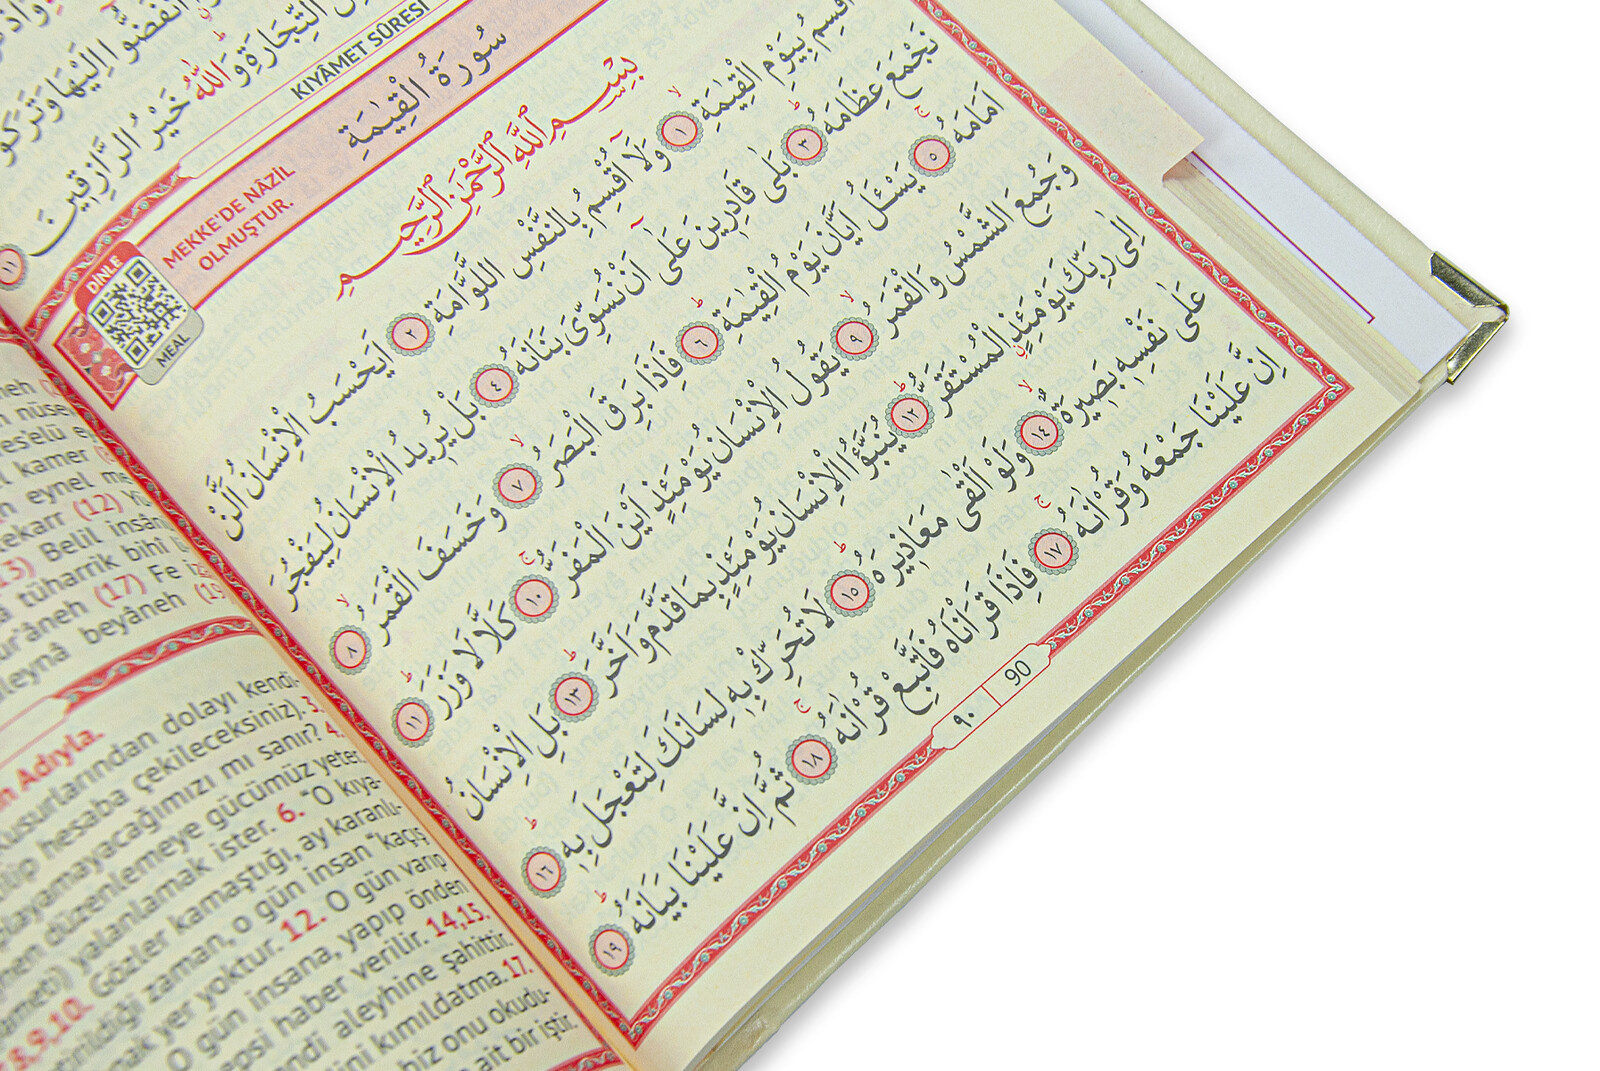 انْفَضُّوا اِلَيْهَا وَتَرَكُو
التِّجَارَةِ وَاللّٰهُ خَيْرُ الرَّازِقِينَ ١١
KIYÂMET SÛRESİ
سُورَةُ الْقِيٰمَةِ
MEKKE'DE NÂZİL
OLMUŞTUR.
DİNLE
MEAL
بِسْمِ اللّٰهِ الرَّحْمٰنِ الرَّحِيمِ
اُقْسِمُ بِيَوْمِ الْقِيٰمَةِ ١ وَلَٓا اُقْسِمُ بِالنَّفْسِ اللَّوَّامَةِ ٢ اَيَحْسَبُ الْاِنْسَانُ اَلَّنْ
نَجْمَعَ عِظَامَهُ ٣ بَلٰى قَادِرِينَ عَلٰٓى اَنْ نُسَوِّىَ بَنَانَهُ ٤ بَلْ يُرِيدُ الْاِنْسَانُ لِيَفْجُرَ
اَمَامَهُ ٥ يَسْـَٔلُ اَيَّانَ يَوْمُ الْقِيٰمَةِ ٦ فَاِذَا بَرِقَ الْبَصَرُ ٧ وَخَسَفَ الْقَمَرُ ٨
وَجُمِعَ الشَّمْسُ وَالْقَمَرُ ٩ يَقُولُ الْاِنْسَانُ يَوْمَئِذٍ اَيْنَ الْمَفَرُّ ١٠ كَلَّا لَا وَزَرَ ١١
اِلٰى رَبِّكَ يَوْمَئِذٍ الْمُسْتَقَرُّ ١٢ يُنَبَّؤُا الْاِنْسَانُ يَوْمَئِذٍ بِمَا قَدَّمَ وَاَخَّرَ ١٣ بَلِ الْاِنْسَانُ
عَلٰى نَفْسِهِ بَصِيرَةٌ ١٤ وَلَوْ اَلْقٰى مَعَاذِيرَهُ ١٥ لَا تُحَرِّكْ بِهِ لِسَانَكَ لِتَعْجَلَ بِهِ ١٦
اِنَّ عَلَيْنَا جَمْعَهُ وَقُرْاٰنَهُ ١٧ فَاِذَا قَرَاْنَاهُ فَاتَّبِعْ قُرْاٰنَهُ ١٨ ثُمَّ اِنَّ عَلَيْنَا بَيَانَهُ ١٩
٩٠ 90
kamer
eynel
(12)
Belil insân
tüharrik bihî
(17) Fe
beyâneh (19
Adıyla.
kusurlarından dolayı kendi-
hesaba çekileceksiniz). 3.
mı sanır? 4.
düzenlemeye gücümüz yeter.
yalanlamak ister. 6. “O kıya-
8,9,10. Gözler kamaştığı, ay karanlı-
zaman, o gün insan “kaçış
yer yoktur. 12. O gün varıp
O gün insana, yapıp önden
haber verilir. 14,15.
aleyhine şahittir.
kımıldatma. 17.
biz onu okudu-
ait bir iştir.